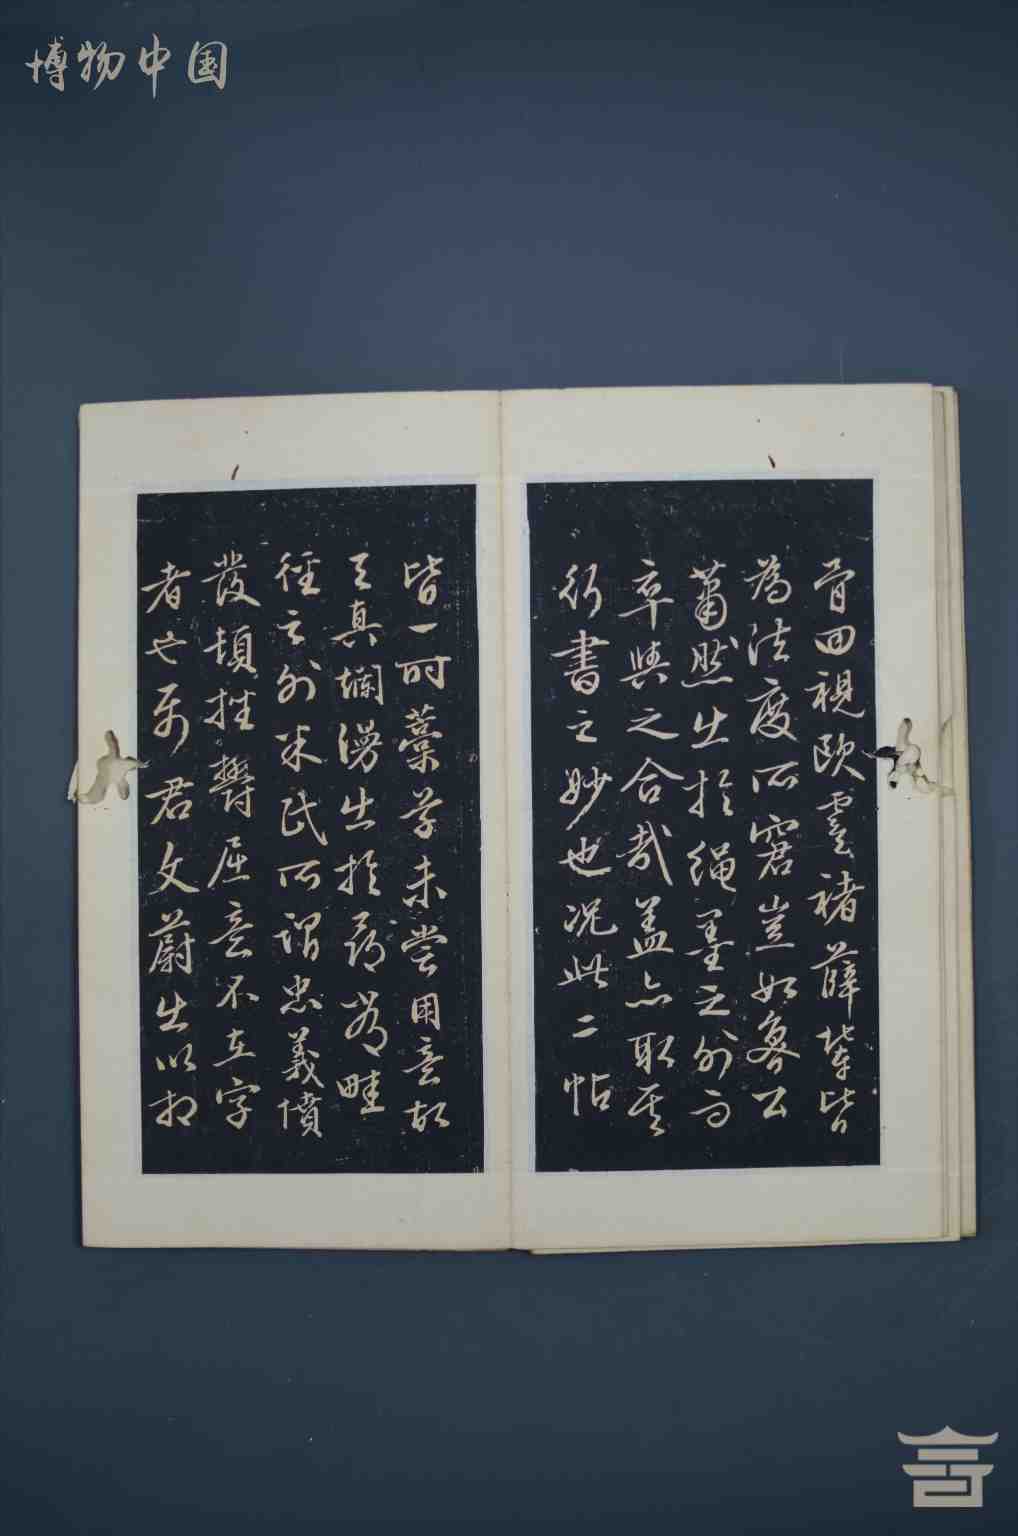 博物中国
骨回視歐虞褚薛輩皆
為法度所窘豈如魯公
蕭然出於繩墨之外而
卒與之合哉蓋亦取其
行書之妙也况此二帖
皆一時藁草未嘗用意故
天真爛漫出於尋常畦
徑之外米氏所謂忠義憤
發頓挫鬱屈意不在字
者也 君文蔚出以相